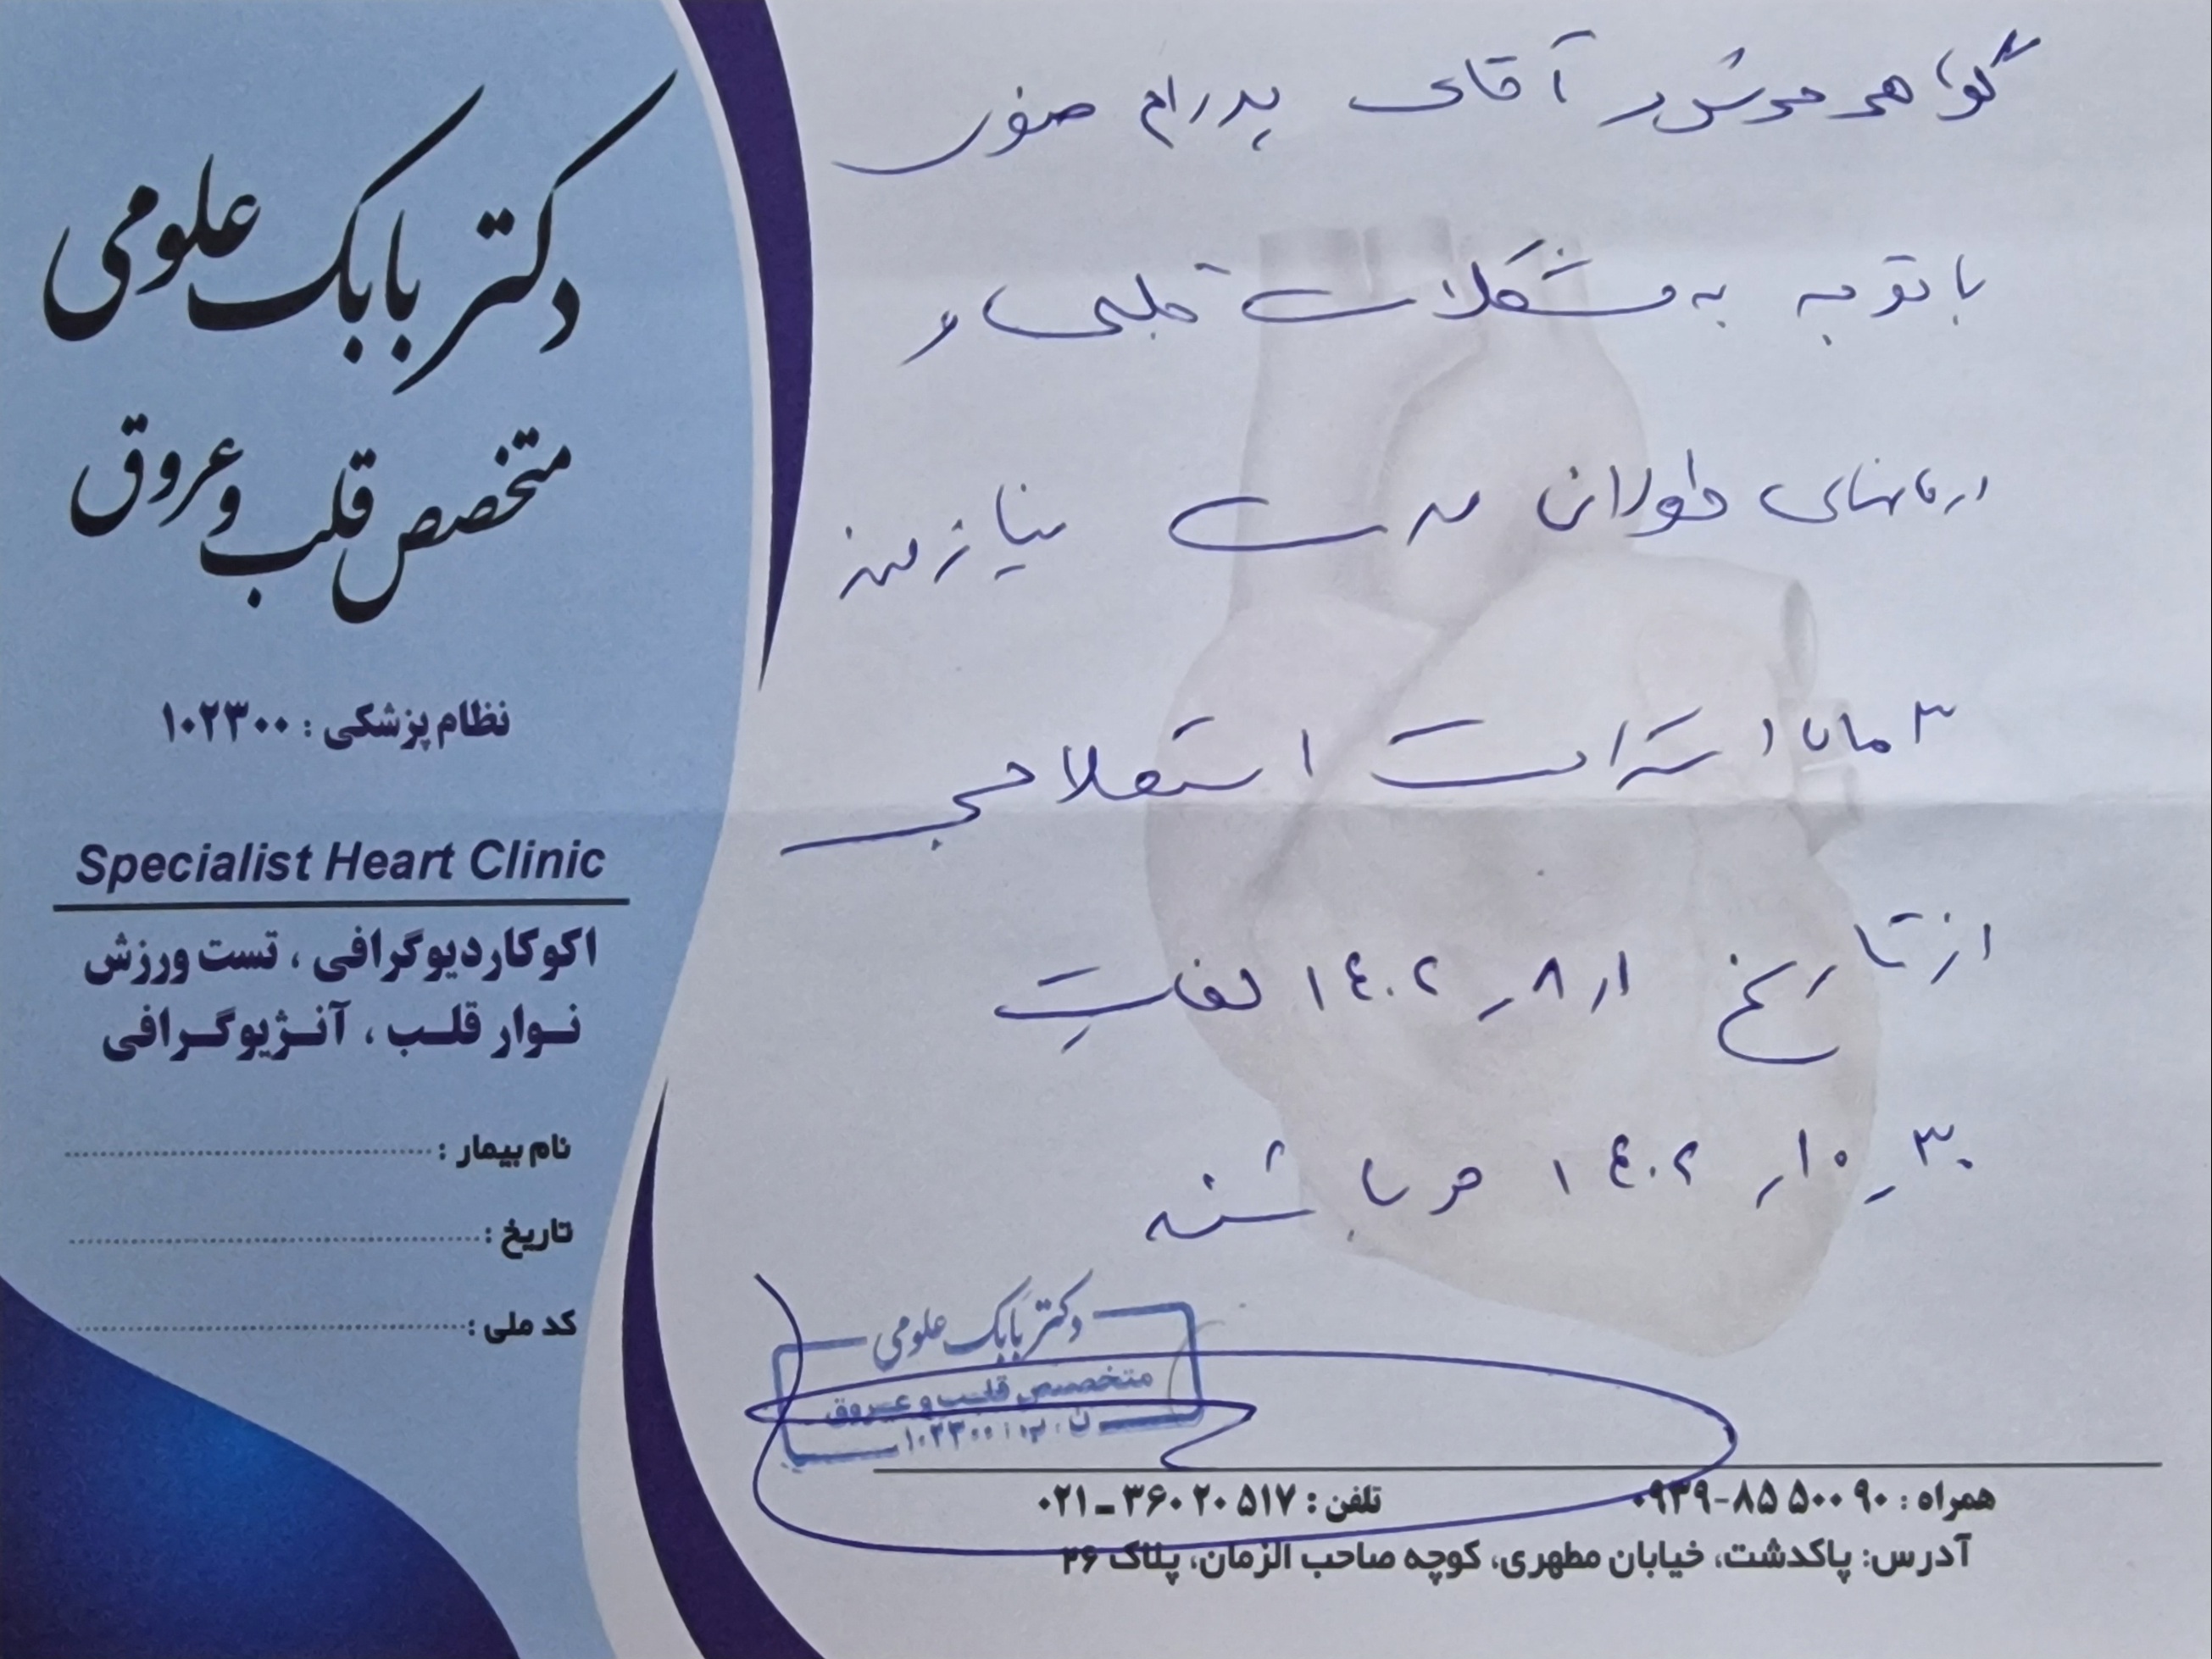 دکتر بابک علومی
متخصص قلب و عروق
نظام پزشکی : ۱۰۲۳۰۰
Specialist Heart Clinic
اکوکاردیوگرافی ، تست ورزش
نوار قلب ، آنژیوگرافی
نام بیمار :
تاریخ :
کد ملی :
گواهی می‌شود آقای پدرام صفری
با توجه به مشکلات قلبی و
درمانهای طولانی مدت نیازمند
۳ ماه استراحت استعلاجی
از تاریخ ۱ر۸ر۱۴۰۲ لغایت
۳۰ر۱۰ر۱۴۰۲ می باشند
دکتر بابک علومی
متخصص قلب و عروق
ن . پ : ۱۰۲۳۰۰
همراه : ۹۰ ۵۰۰ ۸۵-۰۹۳۹ تلفن : ۵۱۷ ۲۰ ۳۶۰ ـ ۰۲۱
آدرس: پاکدشت، خیابان مطهری، کوچه صاحب الزمان، پلاک ۲۶